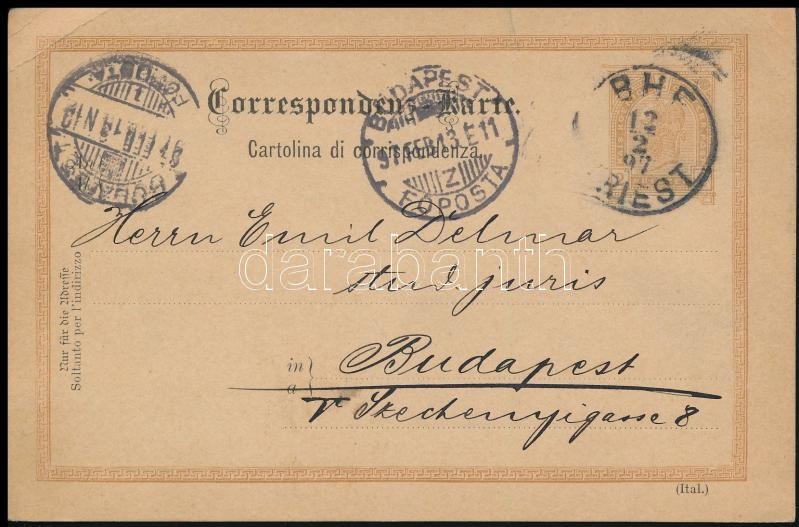 Correspondenz-Karte.
Cartolina di corrispondenza.
BUDAPEST
97 FEB 13 E 11
Z
FŐPOSTA
BHF
12
2
97
RIEST
1
Herrn Emil Delmar
stud. juris
in
a
Budapest
V Szechenyigasse 8
Nur für die Adresse
Soltanto per l'indirizzo
(Ital.)
darabanth